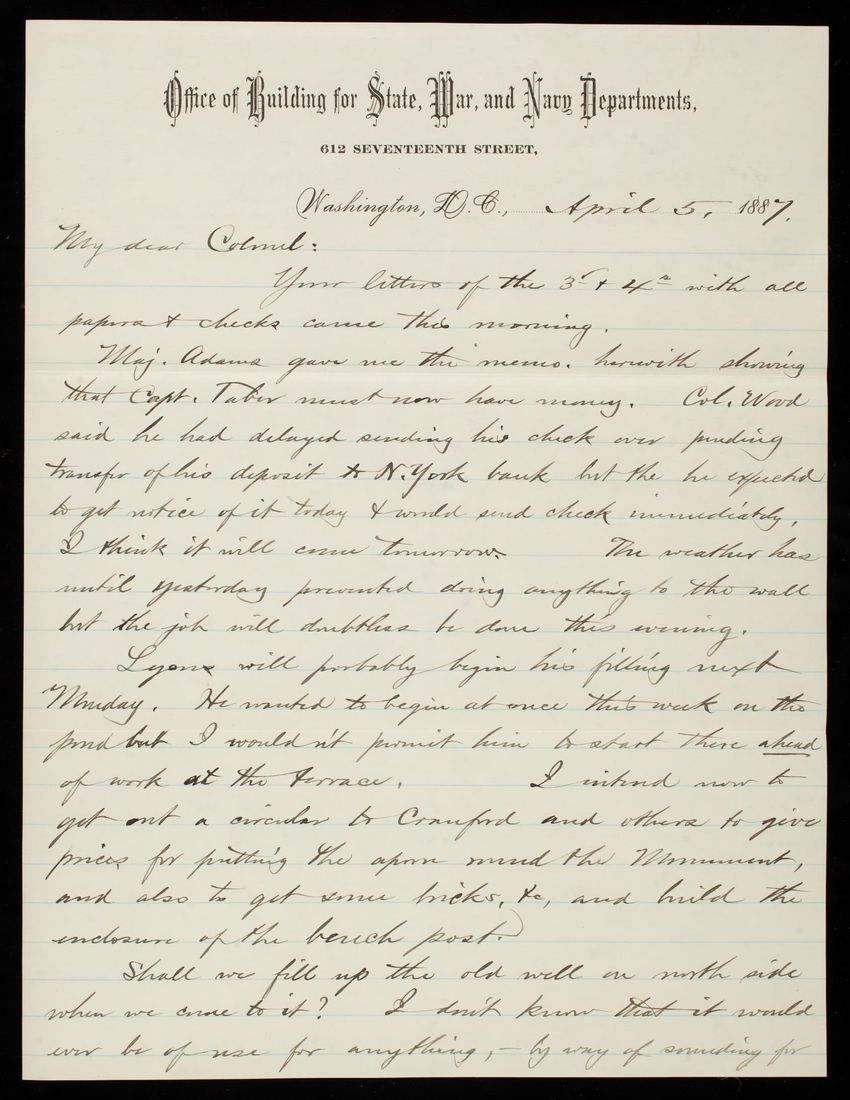 Office of Building for State, War, and Navy Departments,
612 SEVENTEENTH STREET,
Washington, D.C., April 5, 1887.
My dear Colonel:
Your letters of the 3d & 4th with all
papers & checks came this morning.
Maj. Adams gave me the memo. herewith showing
that Capt. Taber must now have money. Col. Wood
said he had delayed sending his check over pending
transfer of his deposit to N. York bank but the he expected
to get notice of it today & would send check immediately,
I think it will come tomorrow. The weather has
until yesterday prevented doing anything to the wall
but the job will doubtless be done this evening.
Lyons will probably begin his filling next
Monday. He wanted to begin at once this week on the
pond but I wouldn't permit him to start there ahead
of work at the terrace. I intend now to
get out a circular to Cranford and others to give
prices for putting the apron round the Monument,
and also to get some bricks, &c, and build the
enclosure of the bench post.
Shall we fill up the old well on north side
when we come to it? I don't know that it would
ever be of use for anything, - by way of sounding for